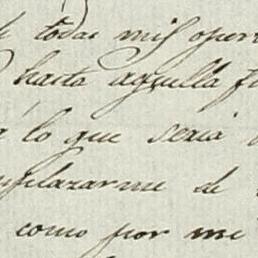 todas mis oper
hasta aquella f
á lo que seria
mplazarme de
como por mi